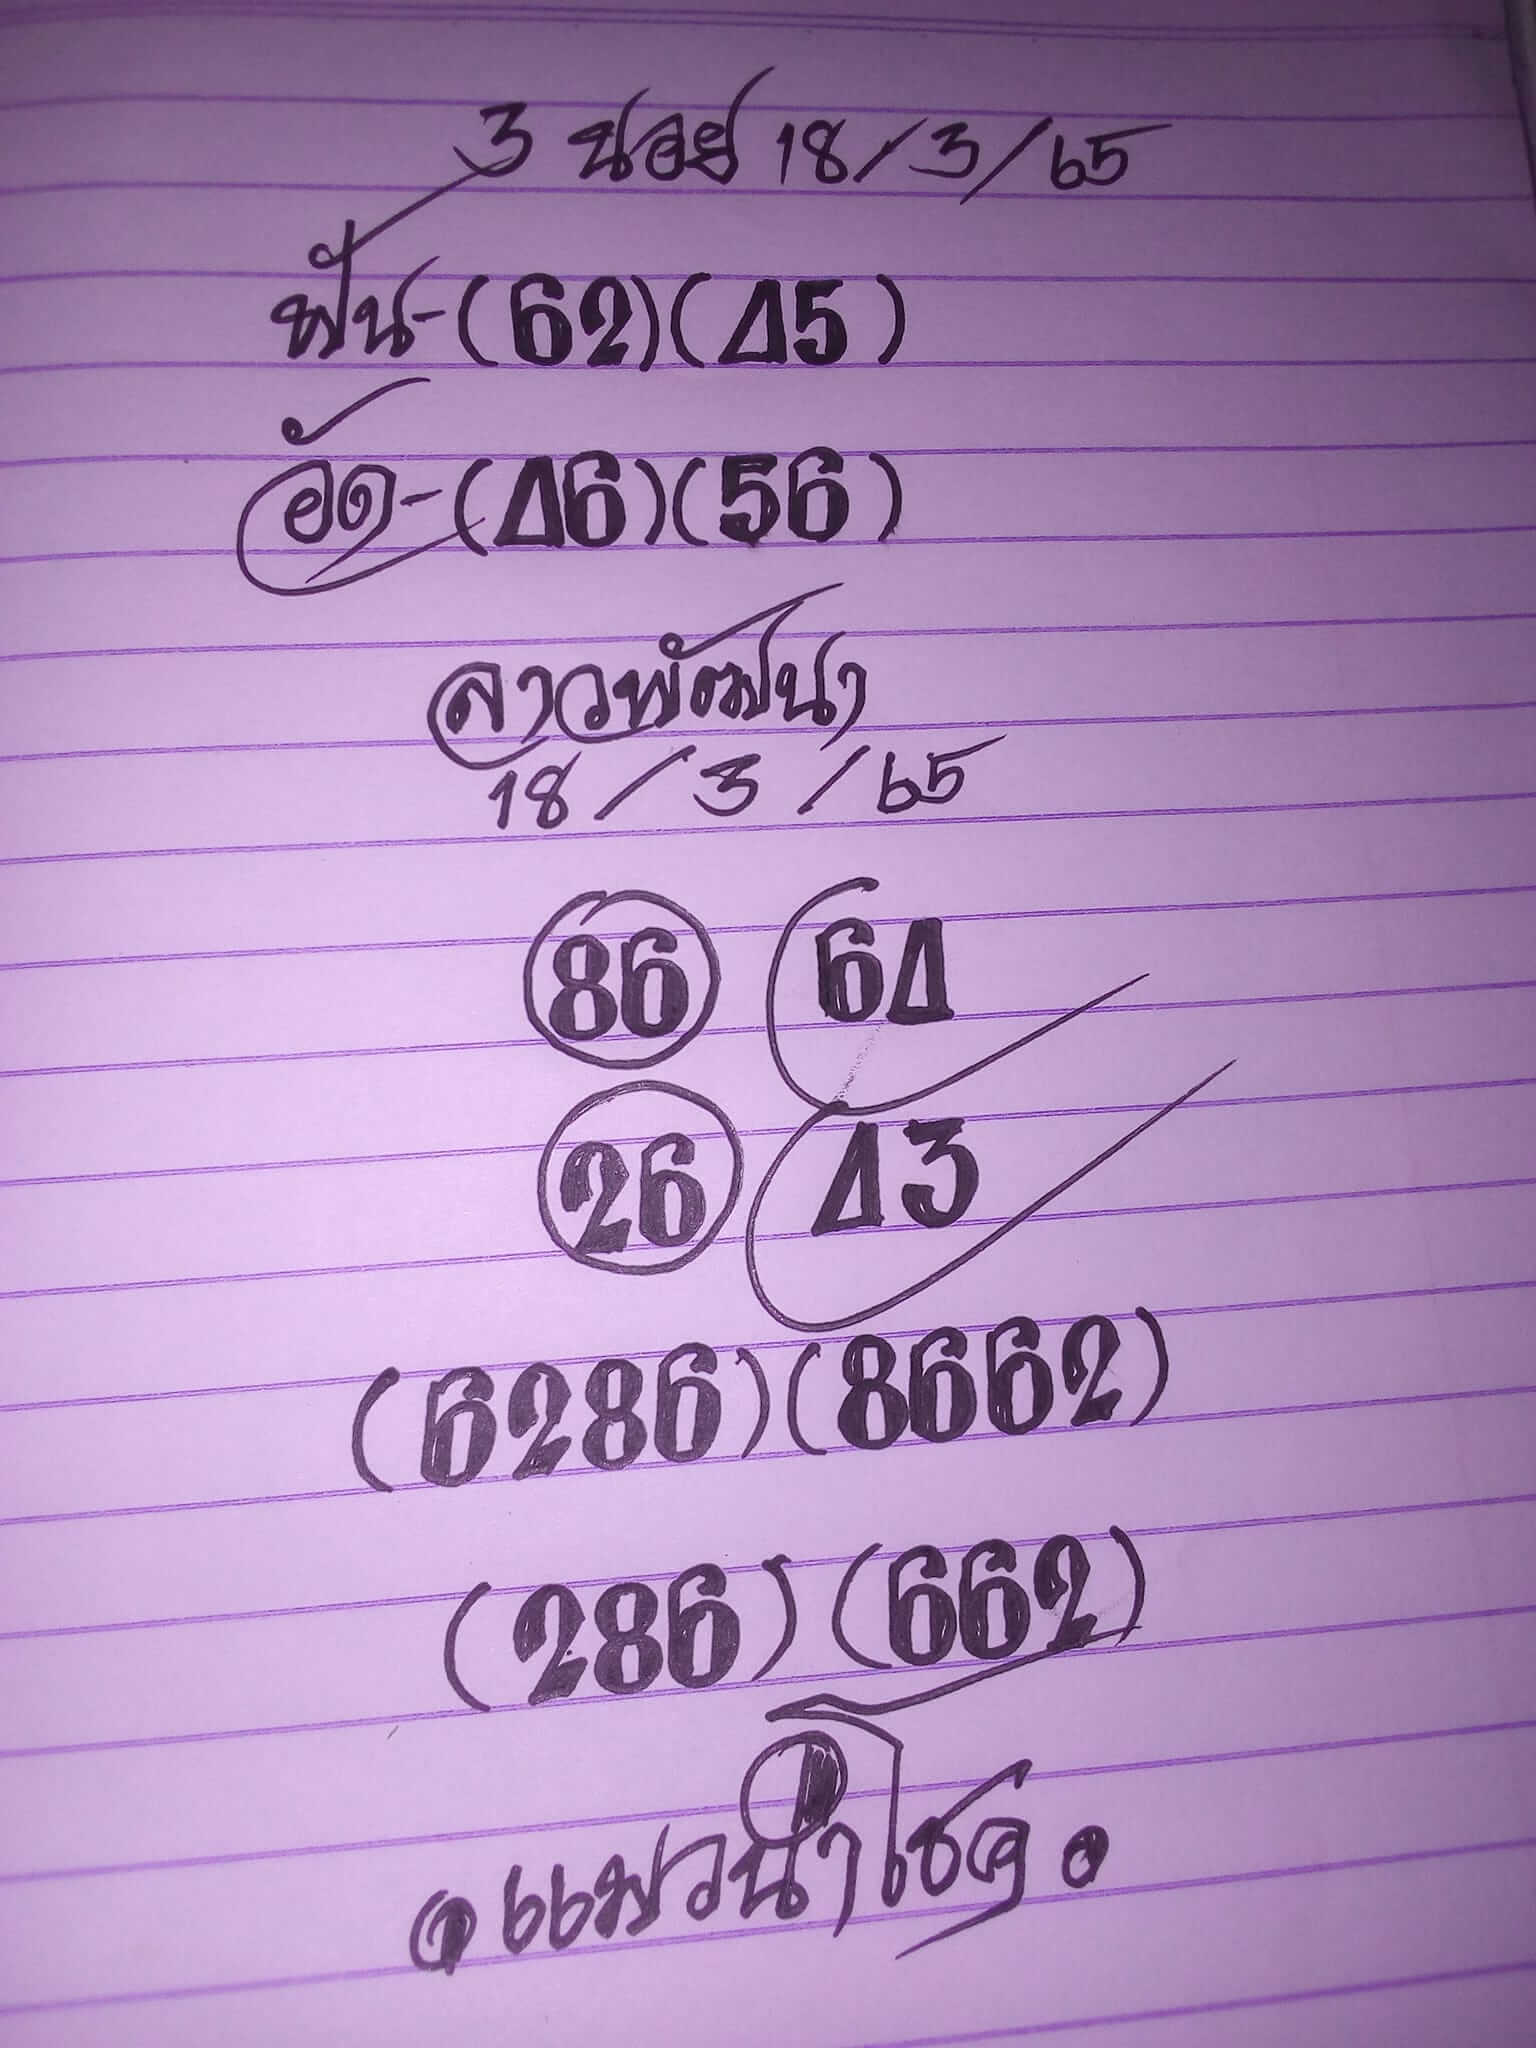 3 นอย 18/3/65
ฟัน-(62)(45)
อัด-(46)(56)
ลาวพัฒนา
18/3/65
86 64
26 43
(6286)(8662)
(286)(662)
แมวนำโชค